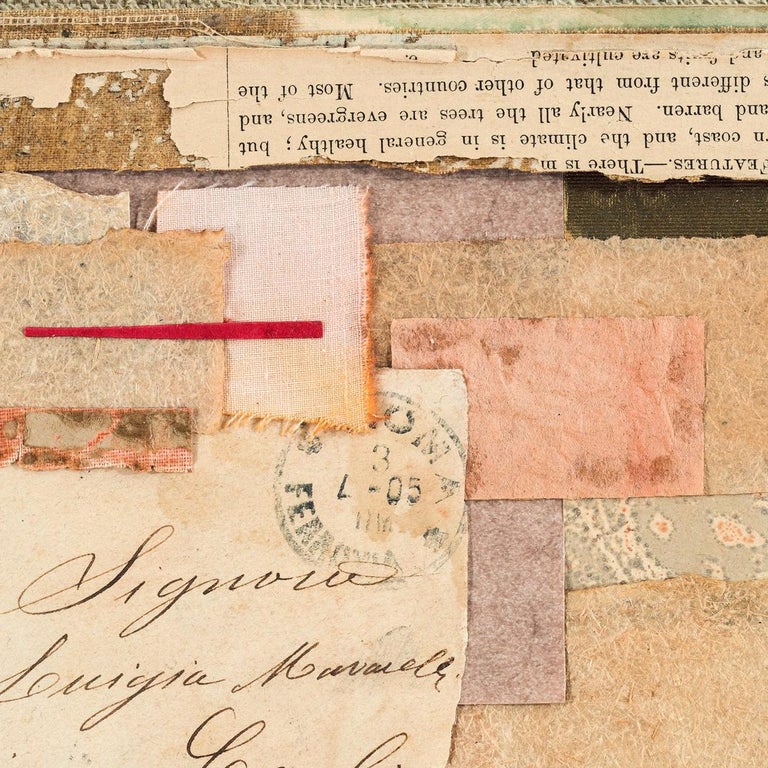 FEATURES.—There is m
n coast, and the climate is in general healthy ; but
and barren. Nearly all the trees are evergreens, and
s different from that of other countries. Most of the
and are cultivated
ONA
3
-05
Signora
Luigia